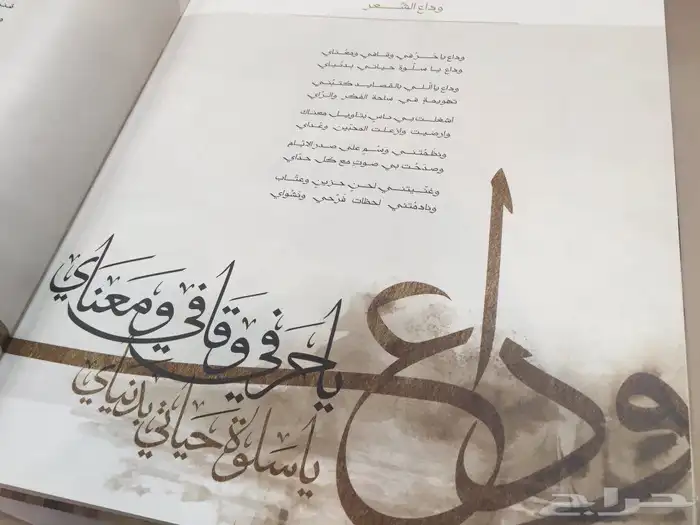 وداع الشعر
وداع يا حرفي وقافي ومعناي
وداع يا سلوة حياتي بدنياي
وداع يا اللي بالقصايد كتبتني
تهويمةٍ في ساحة الفكر والراي
اشغلت بي ناسٍ بتاويل معناك
وارضيت وازعلت المحبين وعداي
ونظمتني وسمٍ على صدر الايام
وصدحت بي صوتٍ مع كل حداي
وغنيتني لحنٍ حزينٍ وعتاب
ونادمتني لحظات فرحي ونشواي
وداع
يا حرفي وقافي ومعناي
يا سلوة حياتي بدنياي
حراج